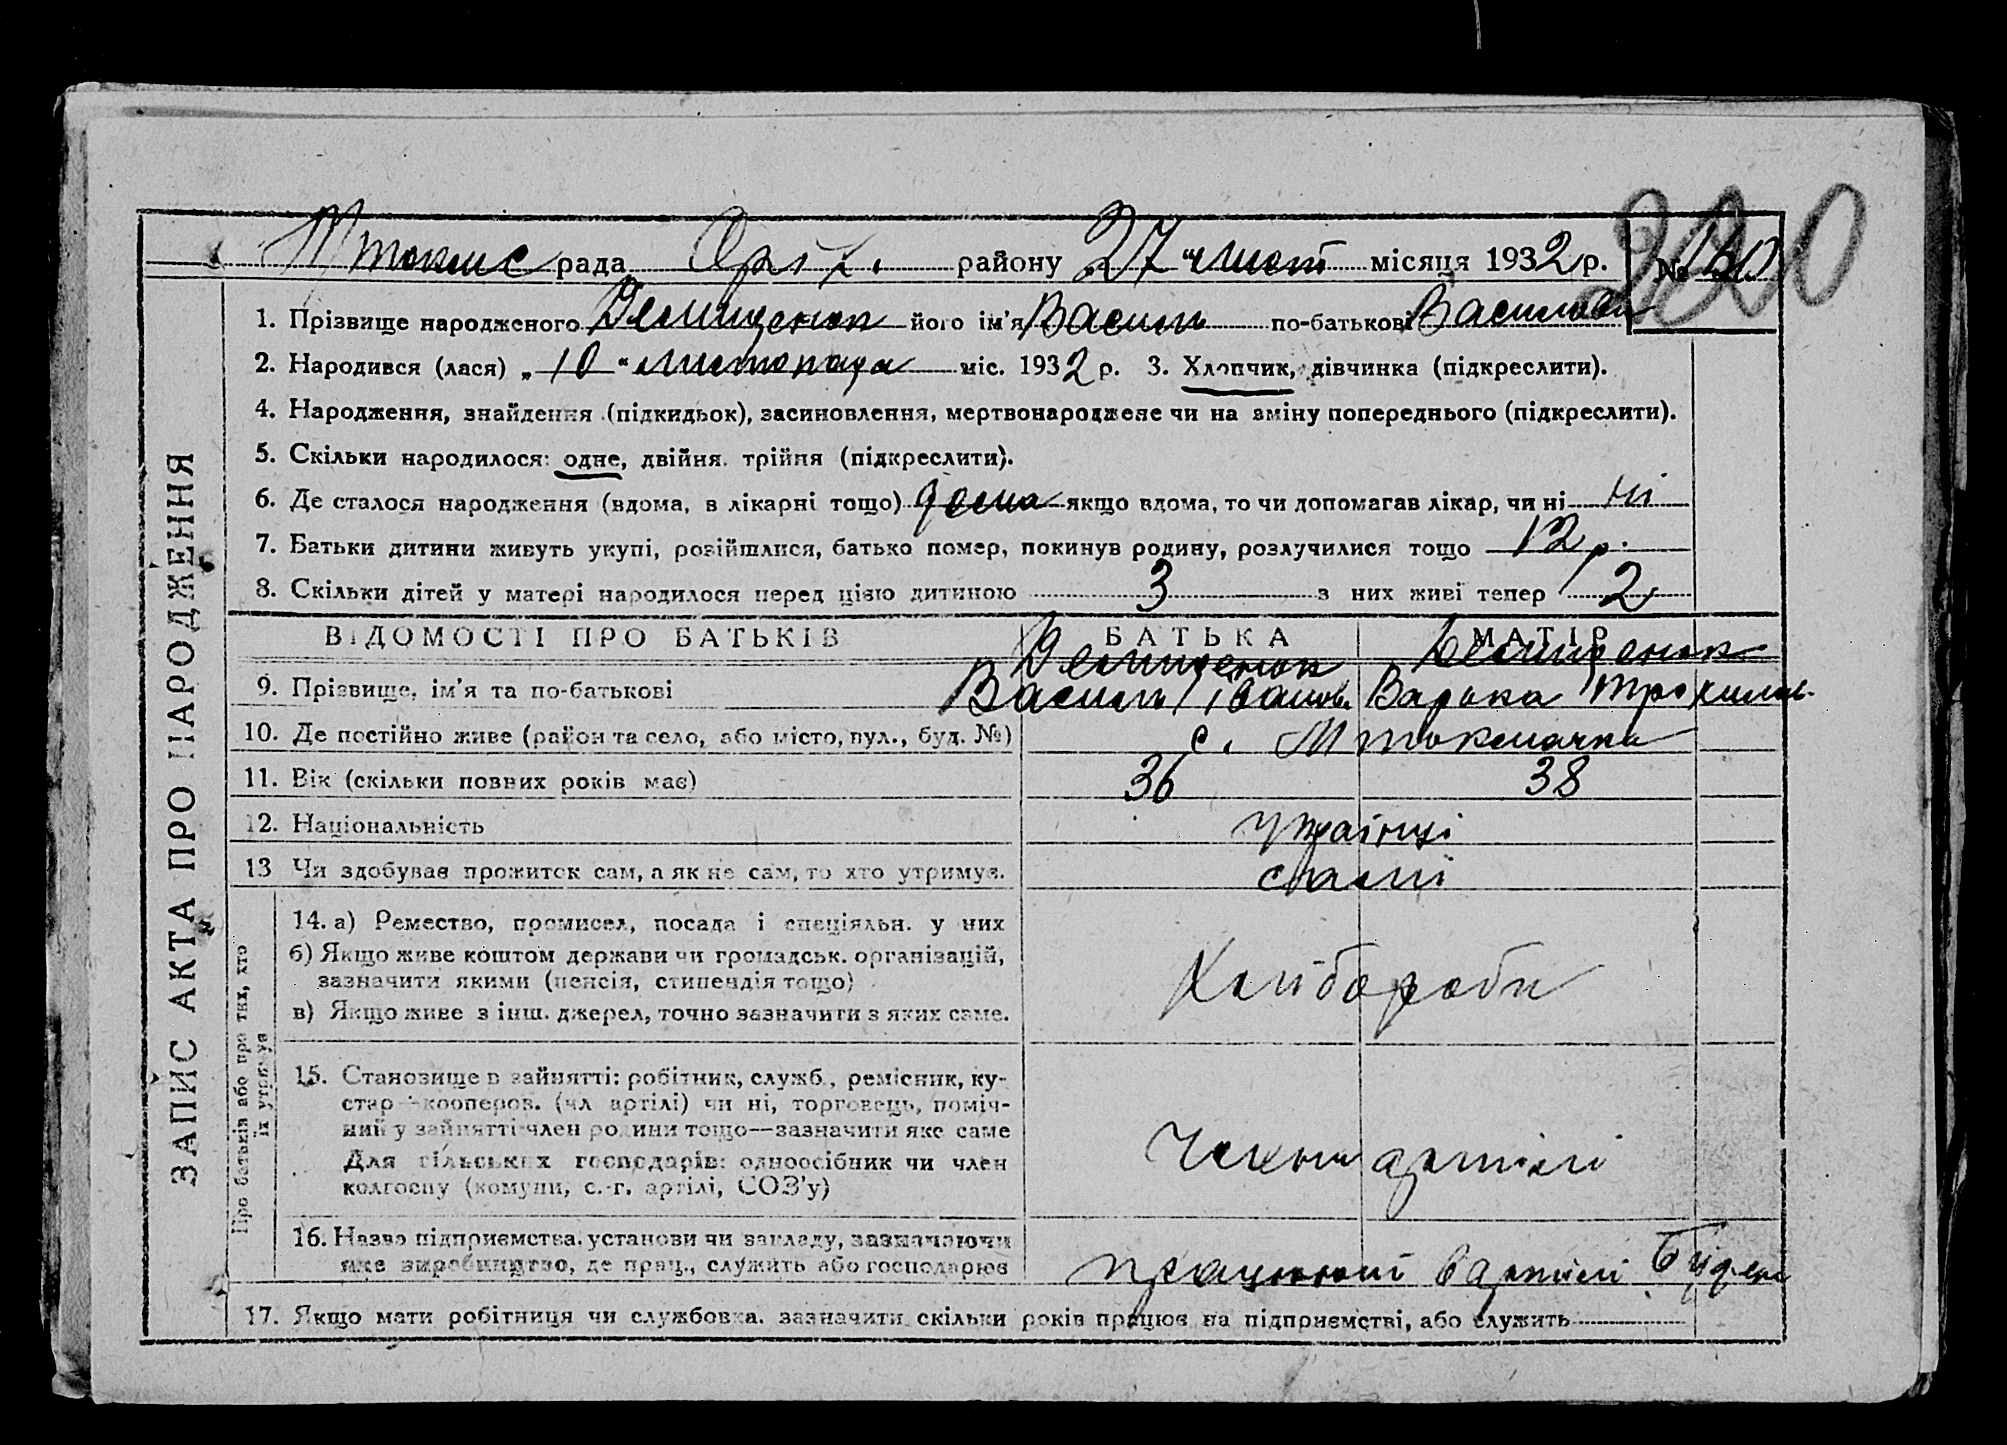 М токмс рада Оріх. району „27" лист місяця 1932 р. № 160
320
1. Прізвище народженого Демищенок його ім'я Василь по-батькові Василев
2. Народився (лася) „10" листопада міс. 1932 р. 3. Хлопчик, дівчинка (підкреслити).
4. Народження, знайдення (підкидьок), засиновлення, мертвонароджене чи на зміну попереднього (підкреслити).
5. Скільки народилося: одне, двійня, трійня (підкреслити).
6. Де сталося народження (вдома, в лікарні тощо) дома якщо вдома, то чи допомагав лікар, чи ні ні
7. Батьки дитини живуть укупі, розійшлися, батько помер, покинув родину, розлучилися тощо 12 р.
8. Скільки дітей у матері народилося перед цією дитиною 3 з них живі тепер 2
ВІДОМОСТІ ПРО БАТЬКІВ БАТЬКА МАТІР
Демищенок Демищенок
9. Прізвище, ім'я та по-батькові Василь Іванов. Варька Трохимов.
10. Де постійно живе (район та село, або місто, вул., буд. №) с. М токмачка
11. Вік (скільки повних років має) 36 38
12. Національність українці
13 Чи здобуває прожиток сам, а як не сам, то хто утримує. самі
ЗАПИС АКТА ПРО НАРОДЖЕННЯ
Про батьків або про тих, хто їх утримує
14. а) Ремество, промисел, посада і спеціяльн. у них
б) Якщо живе коштом держави чи громадськ. організацій,
зазначити якими (пенсія, стипендія тощо)
в) Якщо живе з інш. джерел, точно зазначити з яких саме.
Хлібороби
15. Становище в зайнятті: робітник, служб., ремісник, ку-
стар—кооперов. (чл артілі) чи ні, торговець, поміч-
ний у зайнятті член родини тощо—зазначити яке саме
Для сільських господарів: одноосібник чи член
колгоспу (комуни, с.-г. артілі, СОЗ'у)
Члени артілі
16. Назва підприємства, установи чи закладу, зазначаючи
яке виробництво, де прац., служить або господарює
працюют в артілі Буден
17. Якщо мати робітниця чи службовка, зазначити скільки років працює на підприємстві, або служить